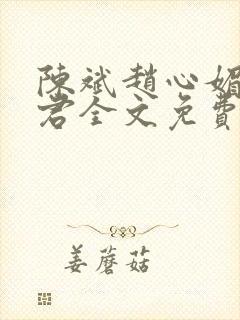 陳斌趙心媚
君全文免費
姜蘑菇